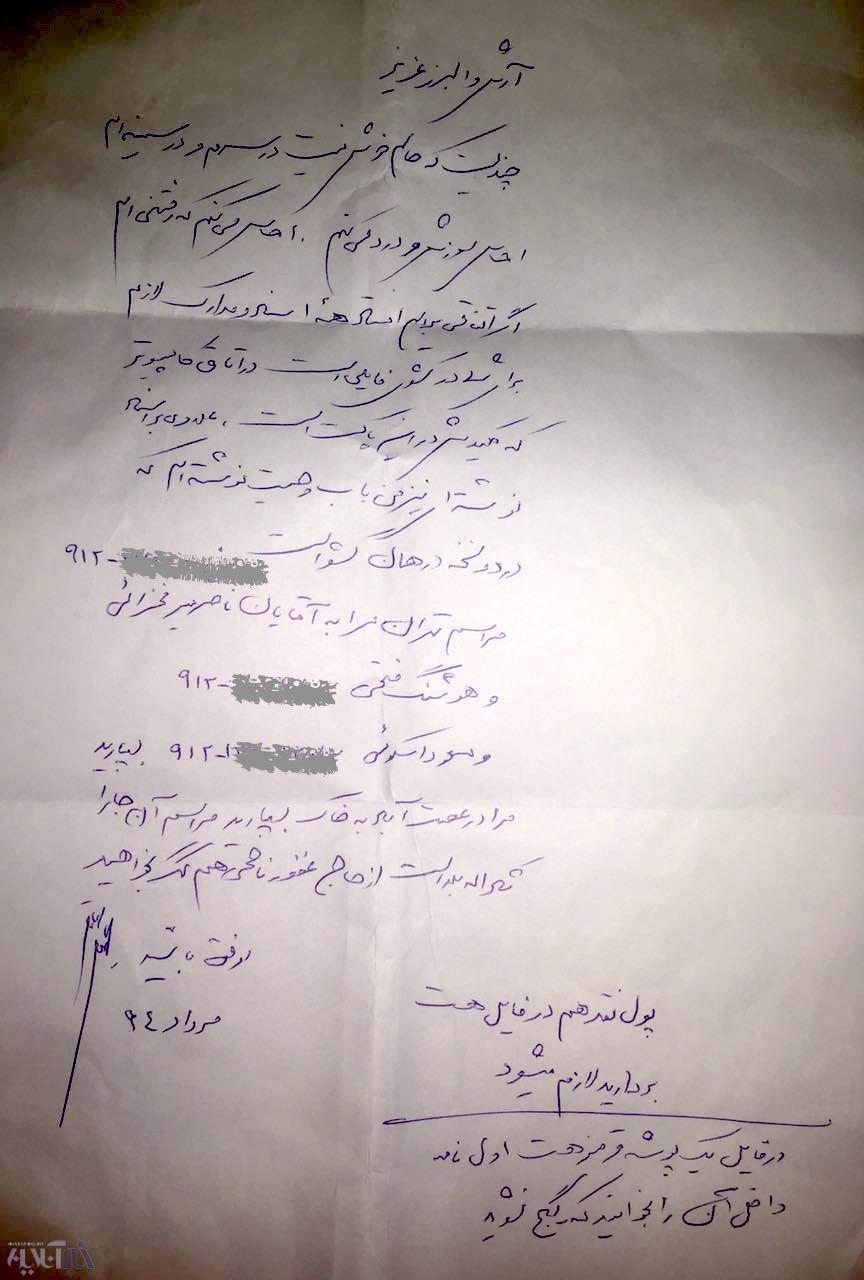 آرش و البرز عزیز
چندیست که حالم خوش نیست در سرم و در سینه‌ام
احساس سوزش و درد می‌کنم . احساس می‌کنم که رفتنی‌ام
اگر اتفاقی برایم افتاد همهٔ اسناد و مدارک لازم
برای شما در کشوی فایلی است در اتاق کامپیوتر
که کلیدش در این پاکت است . علاوه بر اسناد
نوشته‌ای نیز من باب وصیت نوشته‌ام که
در دو نسخه در همان کشو است ۹۱۲-
مراسم تهران مرا به آقایان ناصر میرفخرائی
و هوشنگ فتحی ۹۱۲-
و مسعود اسکوئی ۹۱۲- بسپارید
مرا در عصمت آباد به خاک بسپارید مراسم آن جا را
بلد است از حاج غفور هم کمک بخواهید
موفق باشید
مرداد ۹۴
پول نقد هم در فایل هست
بردارید لازم میشود
در فایل یک پوشه قرمز هست اول نامه
داخل آن را بخوانید که گیج نشوید
خبرآنلاین